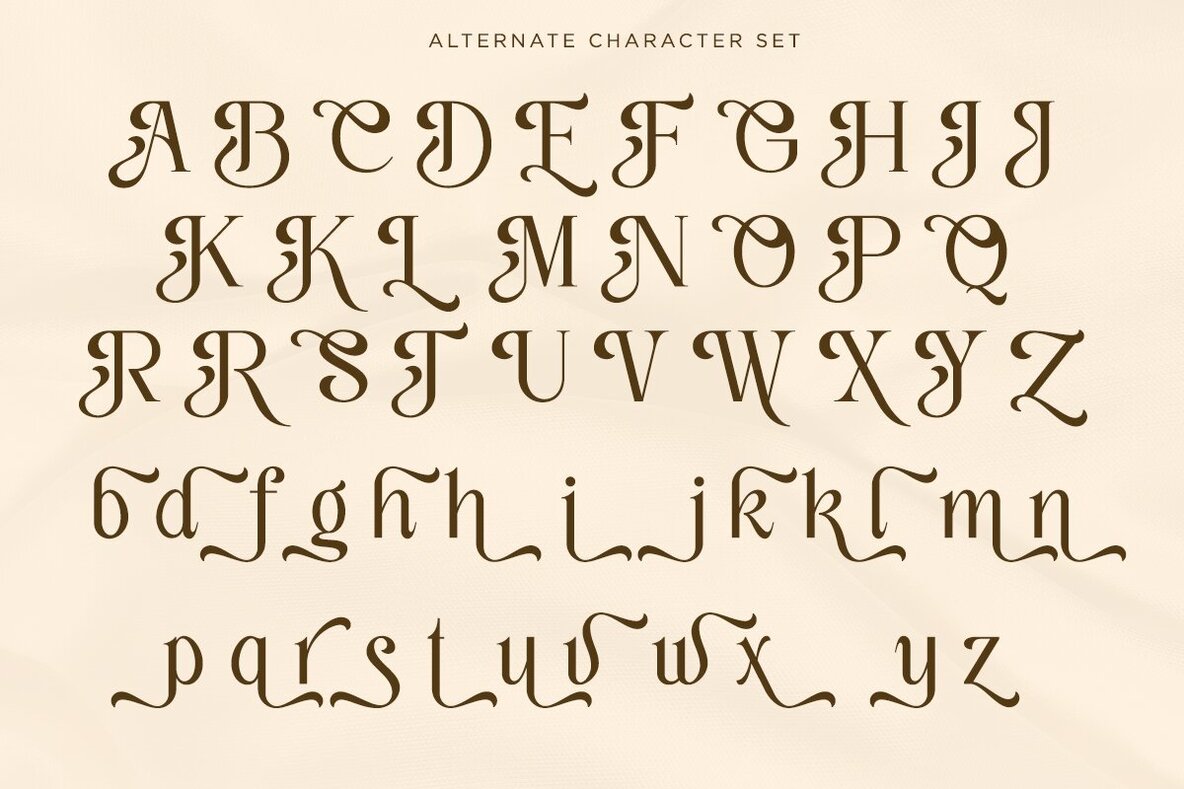 ALTERNATE CHARACTER SET
A B C D E F G H I J
K K L M N O P Q
R R S T U V W X Y Z
b d f g h h i j k k l m n
p q r s t u v w x y z